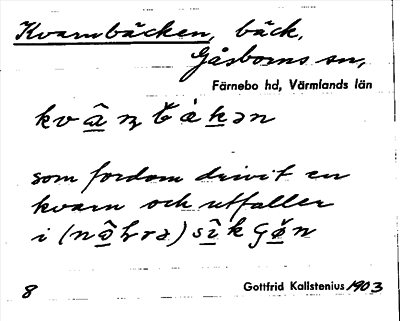 Kvarnbäcken, bäck,
Gåsborns sn,
Färnebo hd, Värmlands län
som fordom drivit en
kvarn och utfaller
i
8
Gottfrid Kallstenius 1903